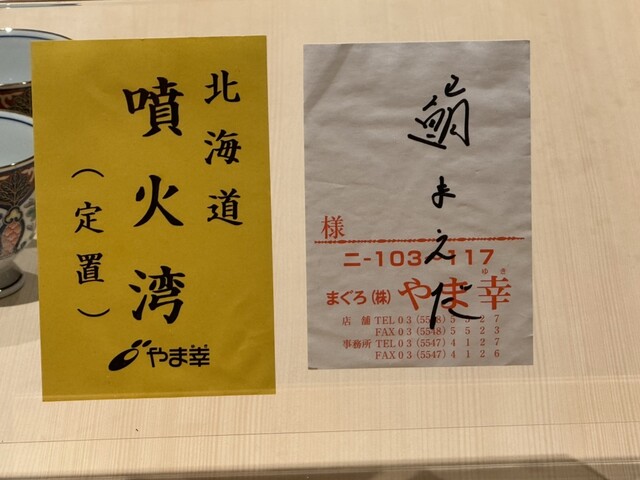 北海道
噴火湾
(定置)
やま幸
鮨まえだ
様
ニ-103 117
まぐろ(株)やま幸
ゆき
店舗 TEL 03(5548)5 2 7
FAX 03(5548)5523
事務所 TEL 03(5547)4127
FAX 03(5547)4126